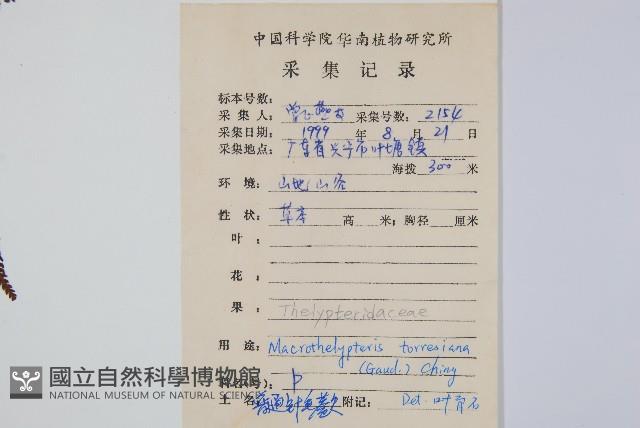 中国科学院华南植物研究所
采集记录
标本号数:
采集人: 采集号数: 2154
采集日期: 1999年8月21日
采集地点: 广东省兴宁市叶塘镇
海拨300米
环境: 山地山谷
性状: 草本 高 米; 胸径 厘米
叶:
花:
果: Thelypteridaceae
用途: Macrothelypteris torresiana
(Gaud.) Ching
土名 普通针毛蕨 附记: Det. 叶育石
國立自然科學博物館
NATIONAL MUSEUM OF NATURAL SCIENCE